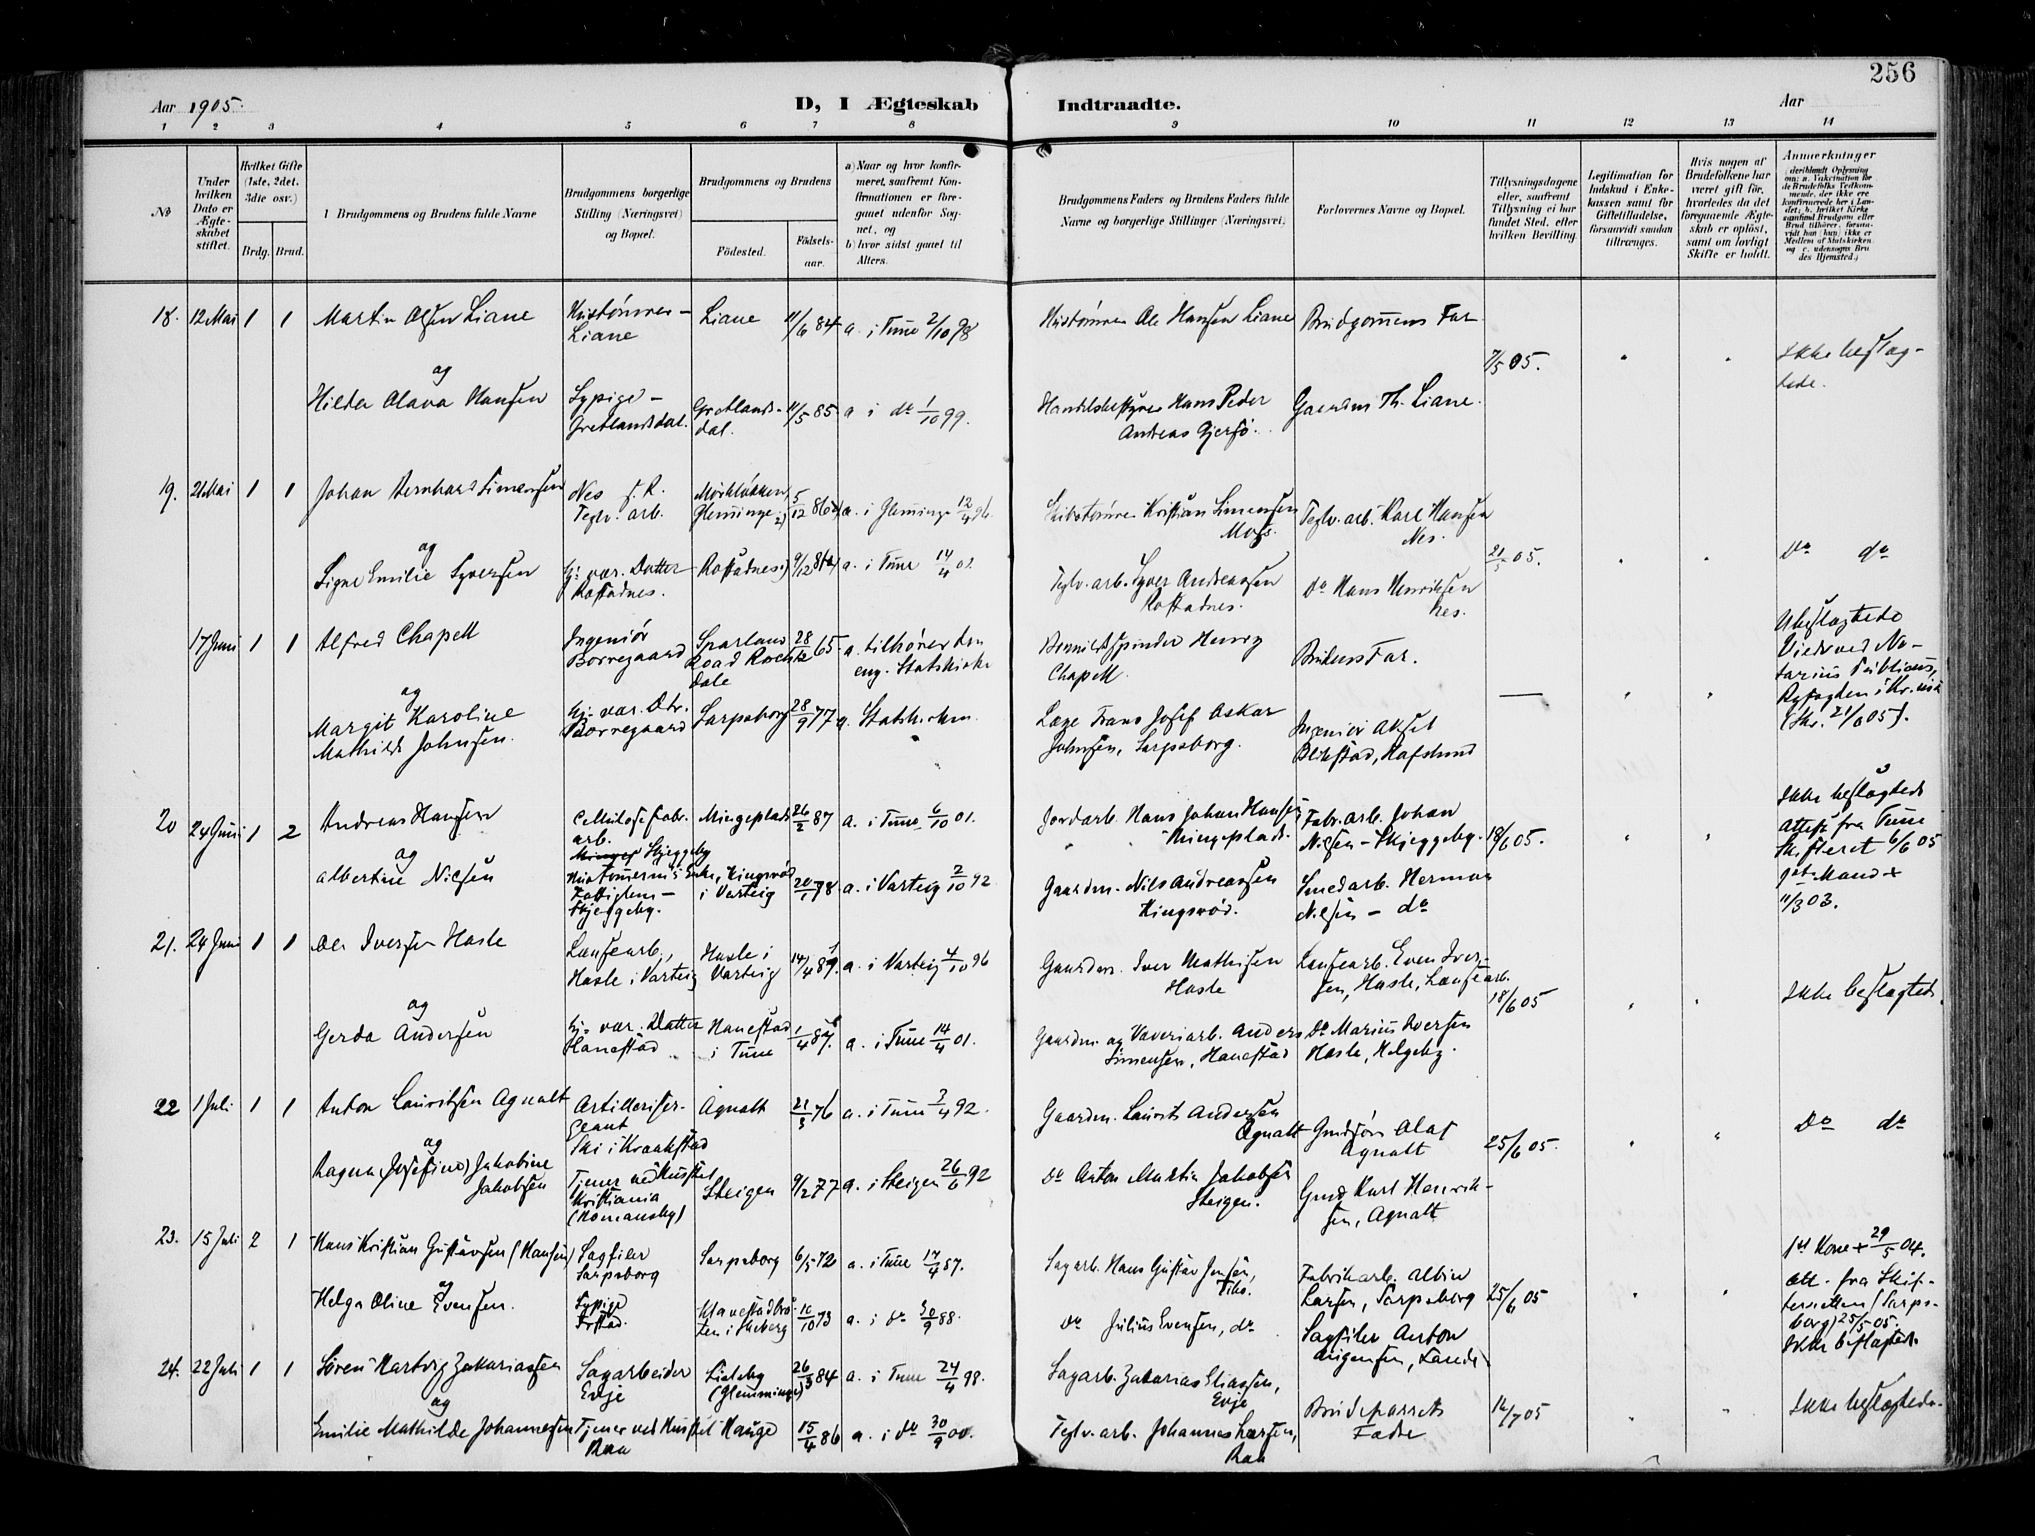 256
Aar 1905.
D, I Ægteskab Indtraadte.
Aar
1 2 3 4 5 6 7 8 9 10 11 12 13 14
No
Under hvilken Dato er Ægteskabet stiftet.
Hvilket Gifte (1ste, 2det, 3die osv.)
Brdg. Brud.
Brudgommens og Brudens fulde Navne
Brudgommens borgerlige Stilling (Næringsvei) og Bopæl.
Brudgommens og Brudens
Födested.
Födsels-aar.
a) Naar og hvor konfirmeret, saafremt Konfirmationen er foregaaet udenfor Sognet, og
b) hvor sidst gaaet til Alters.
Brudgommens Faders og Brudens Faders fulde Navne og borgerlige Stillinger (Næringsvei)
Forlovernes Navne og Bopæl.
Tillysningsdagene eller, saafremt Tillysning ei har fundet Sted, efter hvilken Bevilling.
Legitimation for Indskud i Enkekassen samt for Giftetilladelse, forsaavidt saadan tiltrænges.
Hvis nogen af Brudefolkene har været gift för, hvorledes da det foregaaende Ægteskab er oplöst, samt om lovligt Skifte er holdt.
Anmerkninger
18. 12 Mai 1 1 Martin Olsen Liane
Liane
Liane 11/6 84 a. i Tune 2/10 98
Ole Hansen Liane
Brudgommens Far
7/5 05.
og
Hilda Olava Hansen
Sypige -
Gretlandsdal.
Gretlands-
dal.
11/5 85 a i do 1/10 99.
Hans Peder
Andreas Gjersö.
Th. Liane.
19. 21 Mai 1 1 Johan Bernhard Simensen
Nes
Teglv. arb.
Glemminge
5/12
a. i Glemminge 12/4 96
Kristian Simensen
Moss.
Teglv. arb. Karl Hansen
Nes.
21/5 05.
Do do
og
Signe Emilie Syversen
Hj. vær. Datter
Rostadnes.
Rostadnes
9/12
a. i Tune 14/4 01.
Teglv. arb. Syver Andreassen
Rostadnes.
Do Hans Henriksen
Nes.
17 Juni 1 1 Alfred Chapell
Ingeniör
Borregaard
Road Roch
dale
28/12 65
a. tilhörer den
eng. Statskirke
Henry
Chapell
Brudens Far.
Ubeslægtede
Viede ved No-
tarius Publicus,
og
Margit Karoline
Mathilde Johnsen.
Hj. vær. Dtr.
Borregaard
Sarpsborg 28/9 77 a. Statskirken
Læge Frans Josef Oskar
Johnsen, Sarpsborg.
Ingeniör Aksel
Blikstad, Hafslund
20 24 Juni 1 2 Andreas Hansen
Cellulosefabr.
arb.
Skjeggeby
Mingeplads 26/2 87 a. i Tune 6/10 01.
Jordarb. Hans Johan Hansen
Mingeplads.
Fabr. arb. Johan
Nilsen - Skjeggeby.
18/6 05.
Ikke beslægtede
Attest fra Tune
Sk.
6/6 05
Mand +
11/3 03.
og
Albertine Nielsen
Skjeggeby.
Kingsröd
i Varteig
20/1 78
a. i Varteig 2/10 92
Gaardm. Nils Andreassen
Kingsröd.
Smedarb. Herman
Nilsen - do
21. 24 Juni 1 1 Ole Iversen Hasle
Hasle i Varteig
Hasle i
Varteig
14/4 81.
a. i Varteig 4/10 96
Gaardm. Iver Mathisen
Hasle
Even Iver-
sen, Hasle,
18/6 05
Ikke beslægtede.
og
Gerda Andersen
Hj. vær. Datter
Hanestad
Hanestad
i Tune
1/4
a. i Tune 14/4 01.
Gaardm. og Væveriarb. Anders
Simensen, Hanestad
Do Marius Iversen
Hasle, Helgeby.
22 1 Juli 1 1 Anton Lauritsen Agnalt
Artilleriser-
geant
Ski i Kraakstad
Agnalt 21/3 76 a. i Tune 3/4 92.
Gaardm. Laurits Andersen
Agnalt
Olaf
Agnalt
25/6 05.
Do do
og
Ragna (Josefine) Jakobine
Jakobsen
Tjener ved Huset
Kristiania
(Homansby)
Steigen 9/2 77 a. i Steigen 26/6 92
do Anton Martin Jakobsen
Steigen.
Karl Henrik-
sen, Agnalt
23. 15 Juli 2 1 Hans Kristian Gustavsen (Hansen)
Sagfiler
Sarpsborg
Sarpsborg 6/5 72 a. i Tune 17/4 87.
Sagarb. Hans Gustav Jensen,
Fabrikarb. Albin
Larsen, Sarpsborg
25/6 05
1ste Kone + 29/5 04.
Att. fra Skif-
teretten (Sarps-
borg) 25/5 05.
Ikke beslægtede
og
Helga Oline Evensen.
Sypige
i Skeberg
10/10 73 a. i do 30/9 88.
do Julius Evensen, do
Sagfiler Anton
24. 22 Juli 1 1 Sören Hartvig Zakariassen
Sagarbeider
Evje
Lisleby
(Glemminge)
26/3 84 a. i Tune 24/4 98.
Sagarb. Zakarias Eliassen,
Evje
Brudeparrets
Fædre
16/7 05
Ikke beslægtede.
og
Emilie Mathilde Johannessen
Tjener ved Huset
Raa
Hauge 15/4 86 a. i do 30/9 00.
Teglv. arb. Johannes Larsen,
Raa